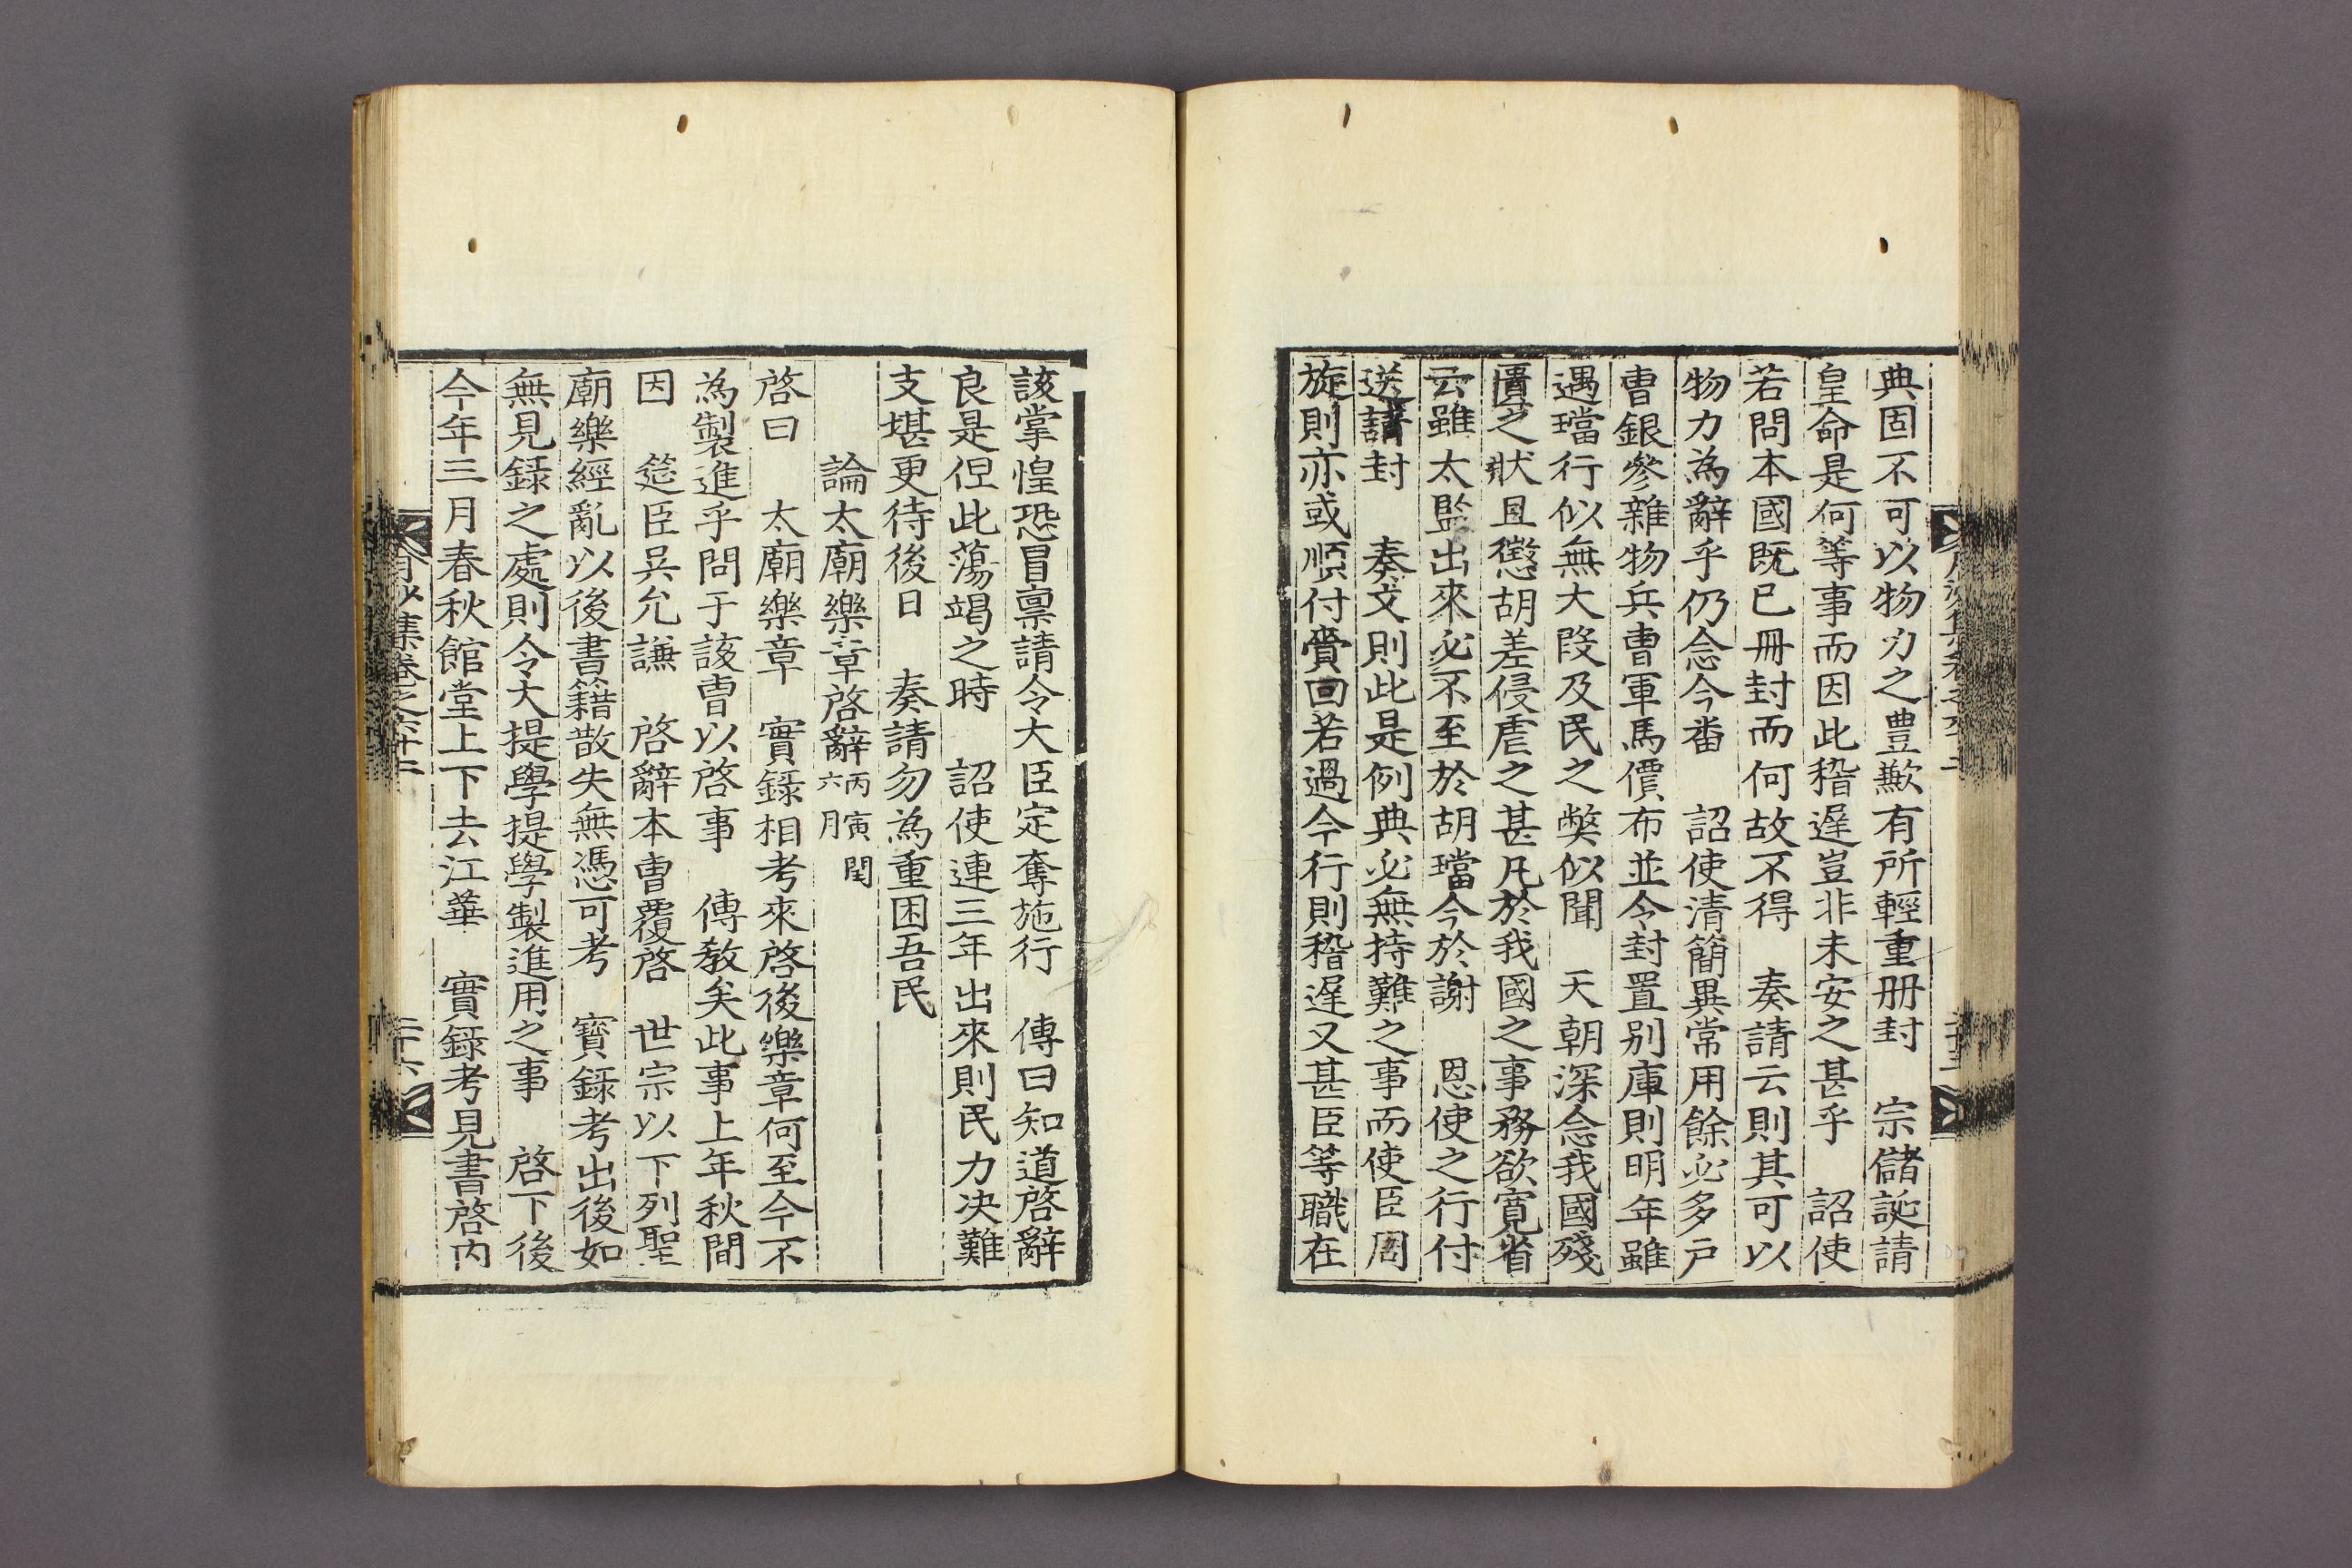 典固不可以物力之豊歉有所輕重册封　宗儲誕請
皇命是何等事而因此稽遅豈非未安之甚乎　詔使
若問本國既已冊封而何故不得　奏請云則其可以
物力為辭乎仍念今畨　詔使清簡異常用餘必多戸
曹銀參雜物兵曹軍馬價布並令封置别庫則明年雖
遇璫行似無大段及民之弊似聞　天朝深念我國殘
匱之狀且懲胡差侵虐之甚凡於我國之事務欲寛省
云雖太監出來必不至於胡璫今於謝　恩使之行付
送請封　奏文則此是例典必無持難之事而使臣周
旋則亦或順付賫回若過今行則稽遅又甚臣等職在
該掌惶恐冒禀請令大臣定奪施行　傳曰知道啓辭
良是但此蕩竭之時　詔使連三年出來則民力决難
支堪更待後日　奏請勿為重困吾民
論太廟樂章啓辭丙寅閏六月
啓曰　太廟樂章　實録相考來啓後樂章何至今不
為製進乎問于該曹以啓事　傳教矣此事上年秋間
因　筵臣吳允謙　啓辭本曹覆啓　世宗以下列聖
廟樂經亂以後書籍散失無憑可考　實録考出後如
無見録之處則令大提學提學製進用之事　啓下後
今年三月春秋館堂上下去江華　實録考見書啓内
月沙集卷之六十二
二十六